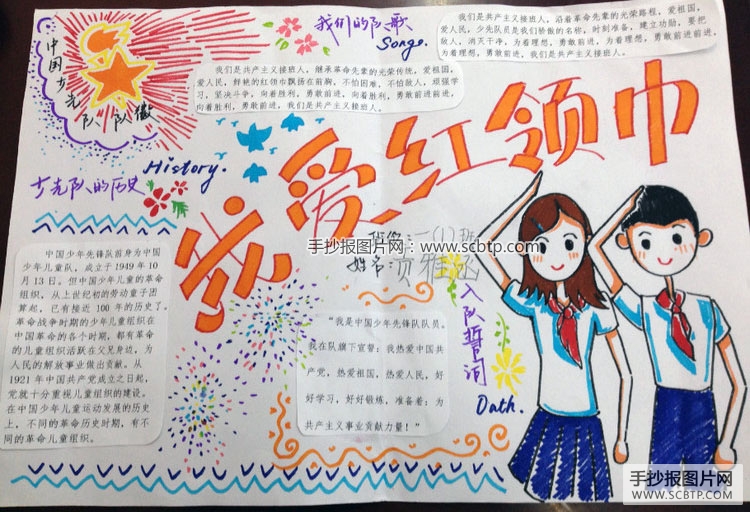 中国少先队队徽
我们的队歌
Songs.
我们是共产主义接班人，沿着革命先辈的光荣路程，爱祖国，
爱人民，少先队员是我们骄傲的名称，时刻准备，建立功勋，要把
敌人，消灭干净，为着理想，勇敢前进，为着理想，勇敢前进前进，
为着理想，勇敢前进，我们是共产主义接班人。
我们是共产主义接班人，继承革命先辈的光荣传统，爱祖国，
爱人民，鲜艳的红领巾飘扬在前胸，不怕困难，不怕敌人，顽强学
习，坚决斗争，向着胜利，勇敢前进，向着胜利，勇敢前进前进，
向着胜利，勇敢前进，我们是共产主义接班人。
我爱红领巾
History.
少先队的历史
班级：一（1）班
手抄报图片网：www.scbtp.com
姓名：贡雅涵
中国少年先锋队前身为中国
少年儿童队，成立于 1949 年 10
月 13 日。但中国少年儿童的革命
组织，从上世纪初的劳动童子团
算起，已有接近 100 年的历史了。
革命战争时期的少年儿童组织在
中国革命的各个时期，都有革命
的儿童组织活跃在父兄身边，为
人民的解放事业做出贡献。从
1921 年中国共产党成立之日起，
党就十分重视儿童组织的建设。
在中国少年儿童运动发展的历史
上，不同的革命历史时期，有不
同的革命儿童组织。
入队誓词
Oath.
“我是中国少年先锋队队员。
我在队旗下宣誓：我热爱中国共
产党，热爱祖国，热爱人民，好
好学习，好好锻炼，准备着：为
共产主义事业贡献力量！”
手抄报图片网
WWW.SCBTP.COM